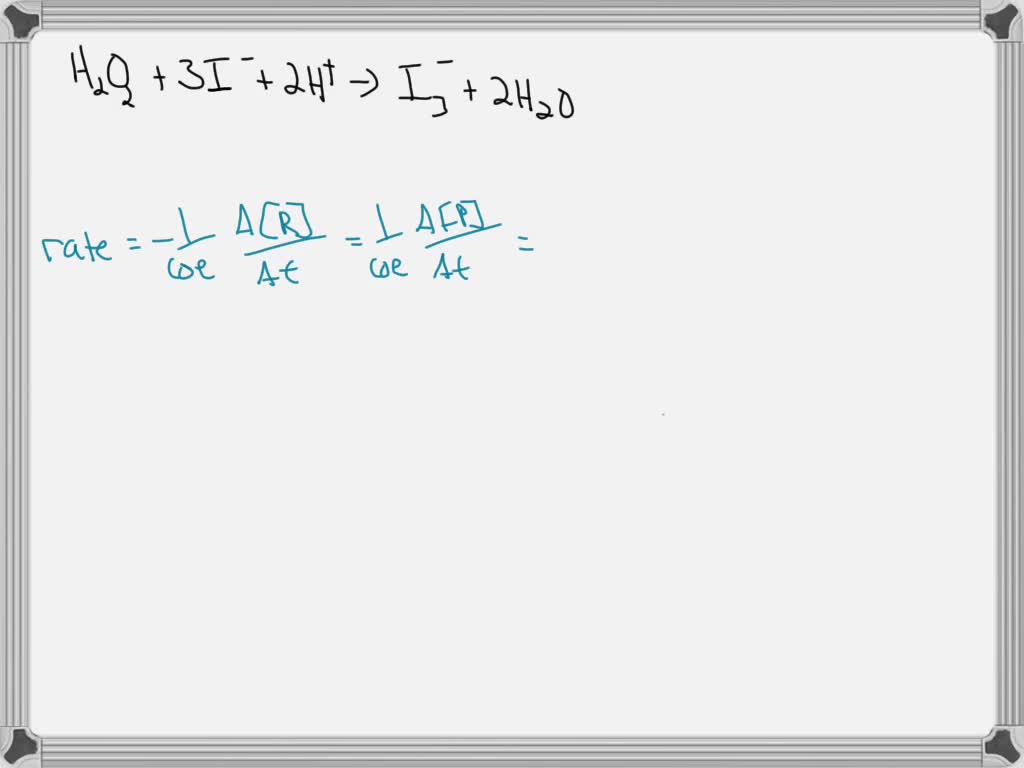 H₂O₂ + 3I⁻ + 2H⁺ → I₃⁻ + 2H₂O
rate = -1/coe Δ[R]/Δt = 1/coe Δ[P]/Δt =